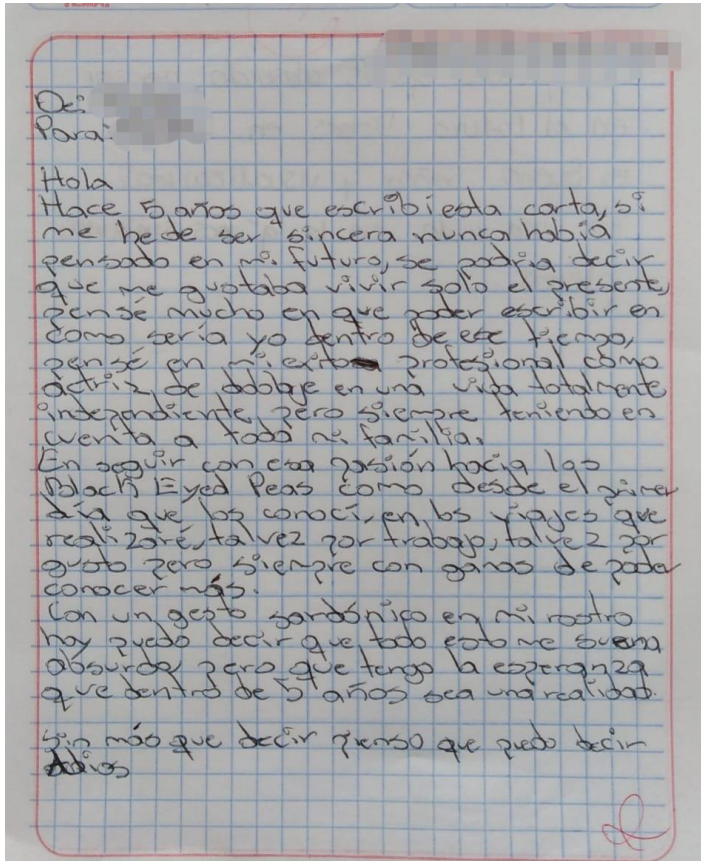 De:
Para:
Hola
Hace 5 años que escribi esta carta, si
me he de ser sincera nunca había
pensado en mi futuro, se podria decir
que me gustaba vivir solo el presente,
pensé mucho en que poder escribir en
como sería yo dentro de ese tiempo,
pensé en mi exito profesional como
actriz de doblaje en una vida totalmente
independiente pero siempre teniendo en
cuenta a toda mi familia.
En seguir con esa pasión hacia los
Black Eyed Peas como desde el primer
día que los conocí, en los viajes que
realizaré, tal vez por trabajo, tal vez por
gusto pero siempre con ganas de poder
conocer más.
Con un gesto sardónico en mi rostro
hoy puedo decir que todo esto me suena
absurdo, pero que tengo la esperanza
que dentro de 5 años sea una realidad.
Sin más que decir pienso que puedo decir
Adios